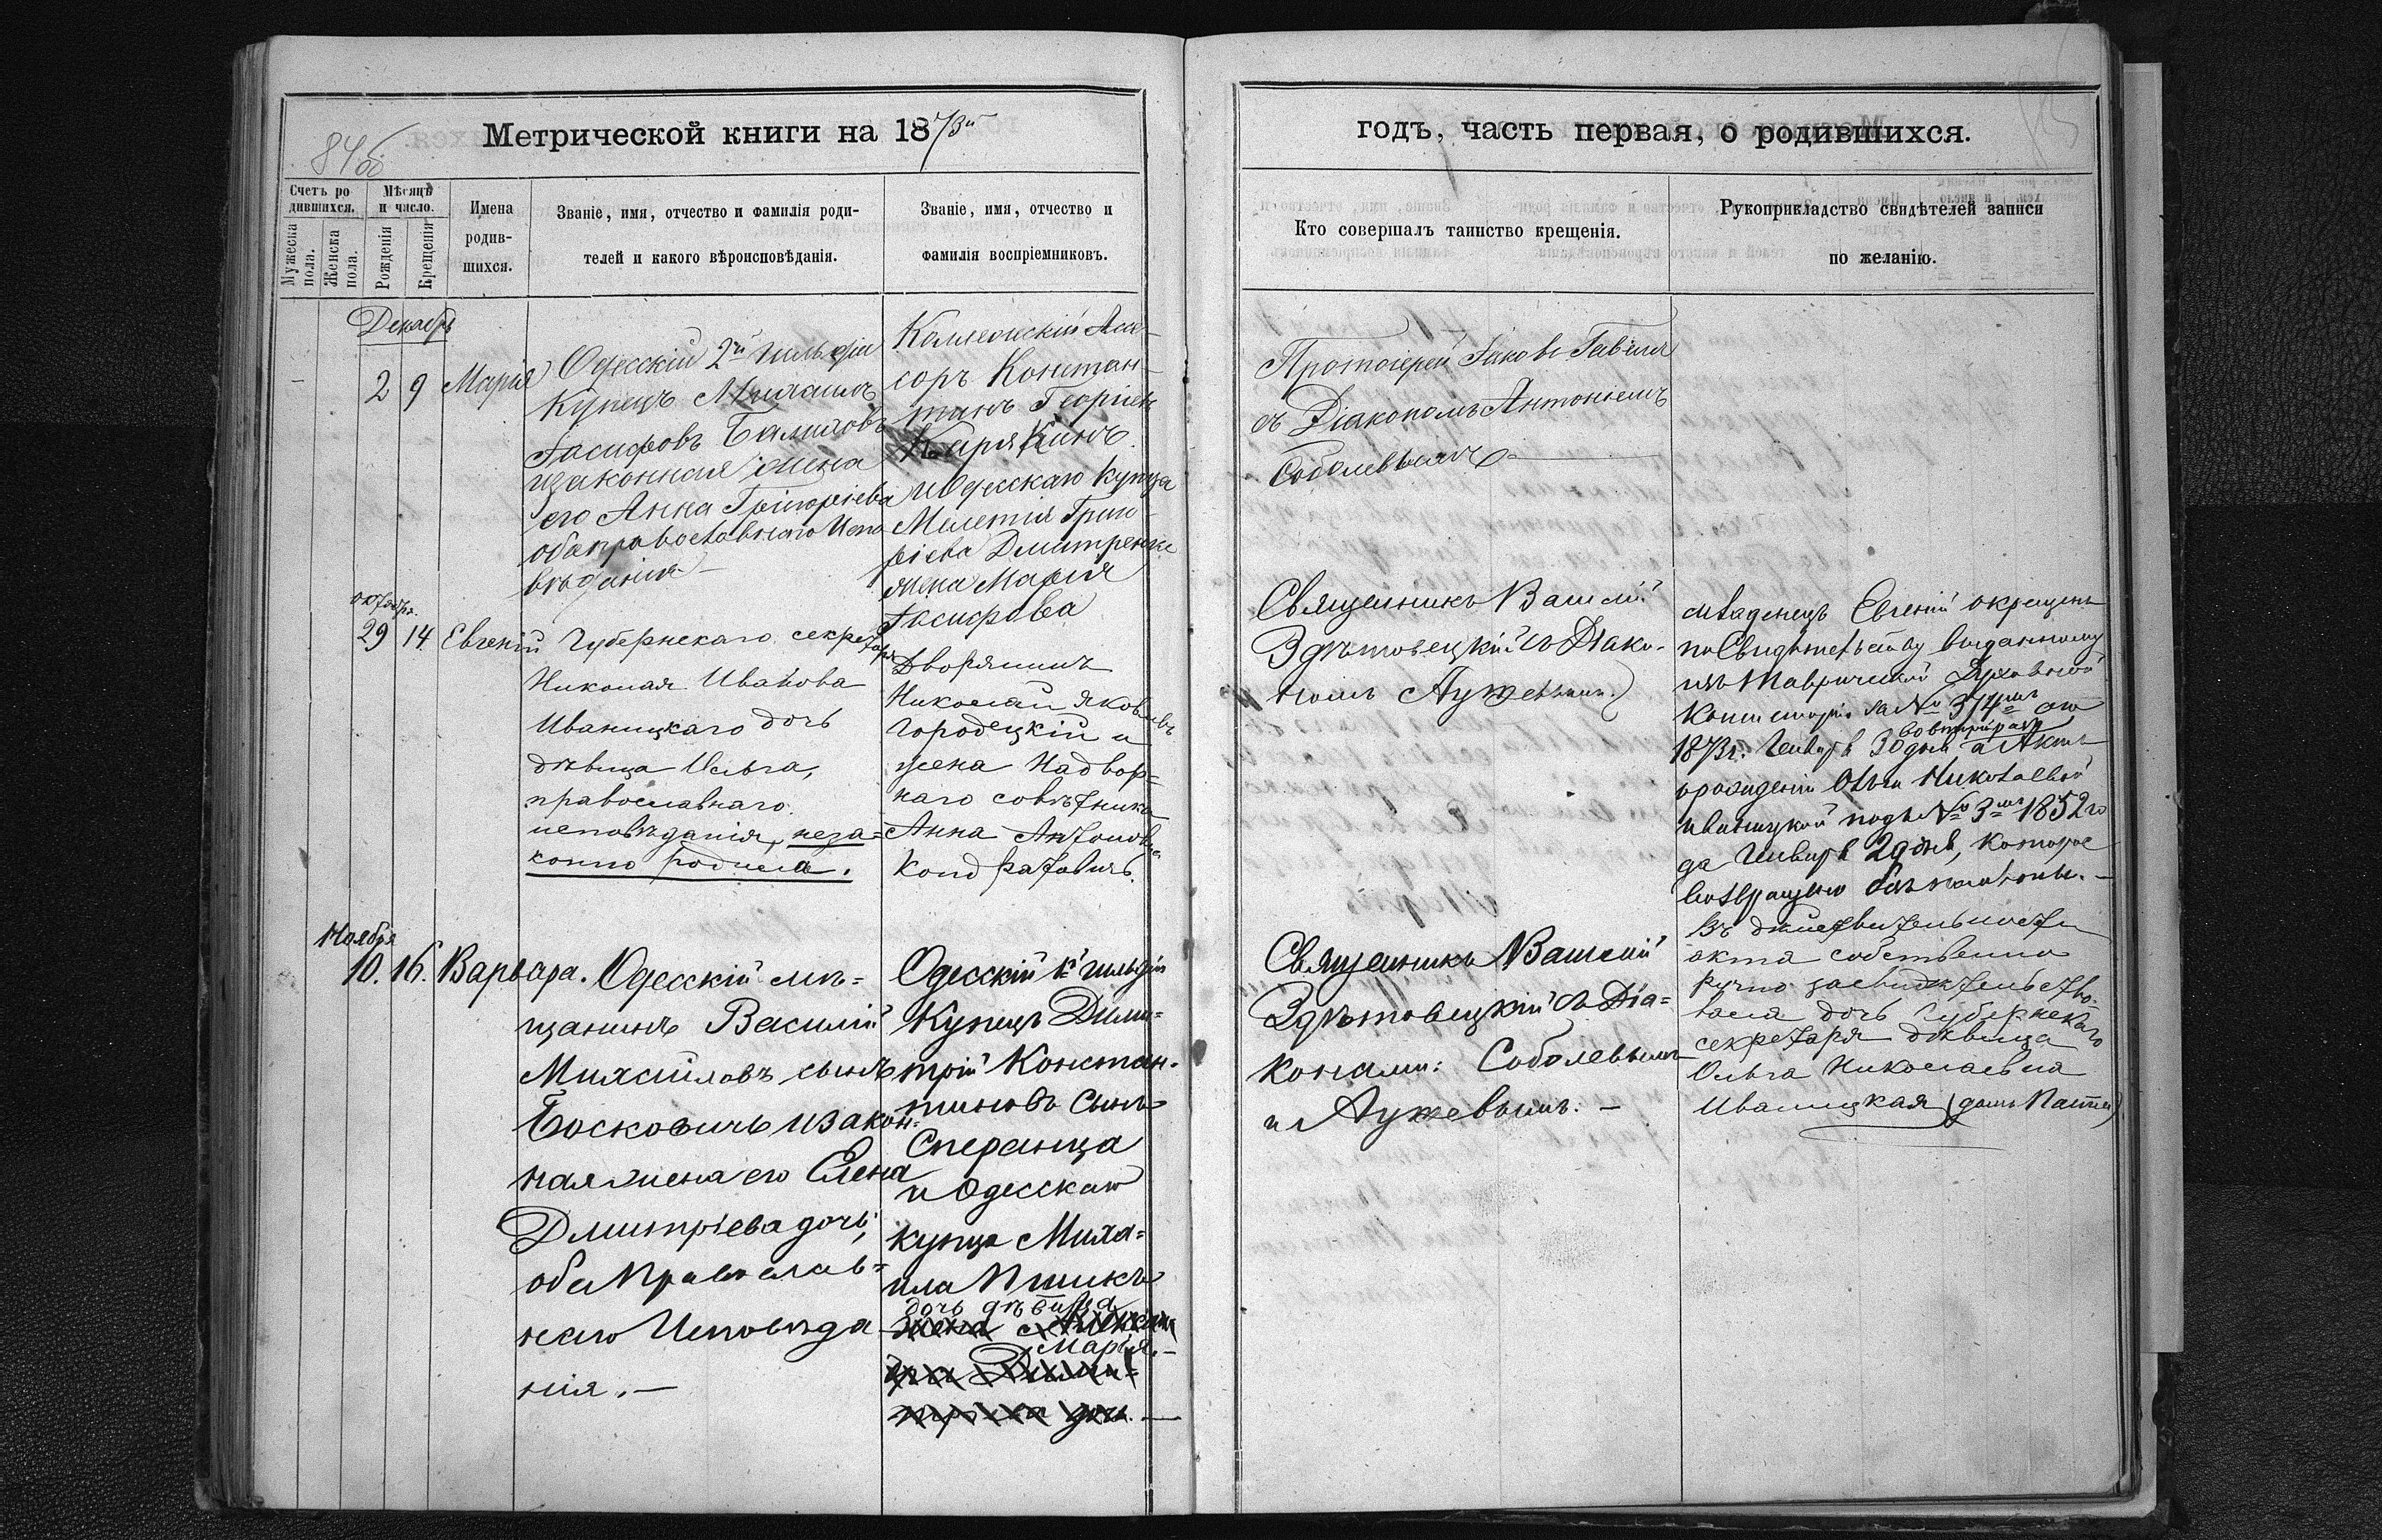 84 об
Метрической книги на 1873й
годъ, часть первая, о родившихся.
Счетъ ро
дившихся.
Мужеска
пола.
Женска
пола.
Мѣсяцъ
и число.
Рожденія
Крещенія
Имена
родив-
шихся.
Званіе, имя, отчество и фамилія роди-
телей и какого вѣроисповѣданія.
Званіе, имя, отчество и
фамилія воспріемниковъ.
Кто совершалъ таинство крещенія.
Рукоприкладство свидѣтелей записи
по желанію.
Декабрь
2 9 Марія
Одесскій 2й гильдіи
Купецъ Михаилъ
Іасифовъ
изаконная жена
его Анна Григоріева
оба православнаго Испо
вѣданія —
Коллежскій Асе-
соръ Констан-
тинъ Георгіев
Карякинъ
и Одесскаго Купца
Мелетія Григо
ріева Дмитренко
жена Марія
Іасифова
Протоіерей Іаковъ
съ Діакономъ Антоніемъ
Соболевымъ
октября.
29 14 Евгеній
Губернскаго секретаря
Николая Иванова
Иваницкаго дочь
дѣвица Ольга,
православнаго
исповѣданія, неза=
конно родила.
Дворянинъ
Николай Яковлевъ
Городецкій и
жена Надвор=
наго совѣтника
Анна Антоновна
Кондратовичъ.
Священникъ Василій
Здѣтовецкій съ Діако-
номъ
младенецъ Евгеній окрещенъ
по Свидѣтельству выданному
изъ Таврической Духовной
Консисторіи за № 314мъ от
1873г. Генваря 30 дня а Актъ
во второй разъ
о рожденіи Ольги Николаевой
Иваницкой подъ № 3мъ 1852 го
да Генваря 29 дня, которое
возвращено
Въ дѣйствительности
акта собственно
ручно засвидѣтельство=
вала дочь Губернскаго
секретаря дѣвица
Ольга Николаевна
Иваницкая
Ноября
10. 16. Варвара.
Одесскій мѣ=
щанинъ Василій
Михайловъ сынъ
Босковичъ и закон=
ная жена его Елена
Дмитріева дочь,
оба Православ=
наго Исповѣда
нія. —
Одесскій 1й гильдіи
Купецъ Дими-
трій Констан-
тиновъ Сынъ
Сперанца
и Одесскаго
купца Миха=
ила
дочь дѣвица
жена
Марія. —
Дими=
тріева дочь. —
Священникъ Василій
Здѣтовецкій съ Діа=
конами: Соболевымъ
и